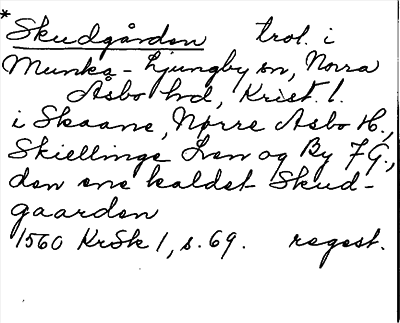 * Skudgården trol. i
Munka-Ljungby sn, Norra
Åsbo hd, Krist. l.
i Skaane, Nørre Asbo H.,
Skiellinge Len og By 7 G.,
den ene kaldet Skud-
gaarden
1560 KrSk 1, s. 69. regest.